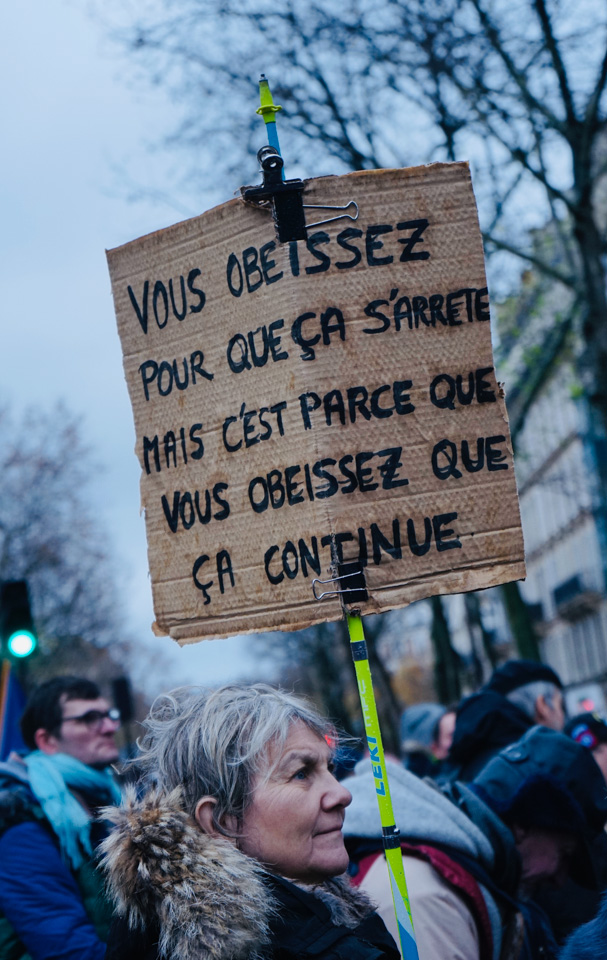 VOUS OBEISSEZ
POUR QUE ÇA S'ARRETE
MAIS C'EST PARCE QUE
VOUS OBEISSEZ QUE
ÇA CONTINUE
LEKI